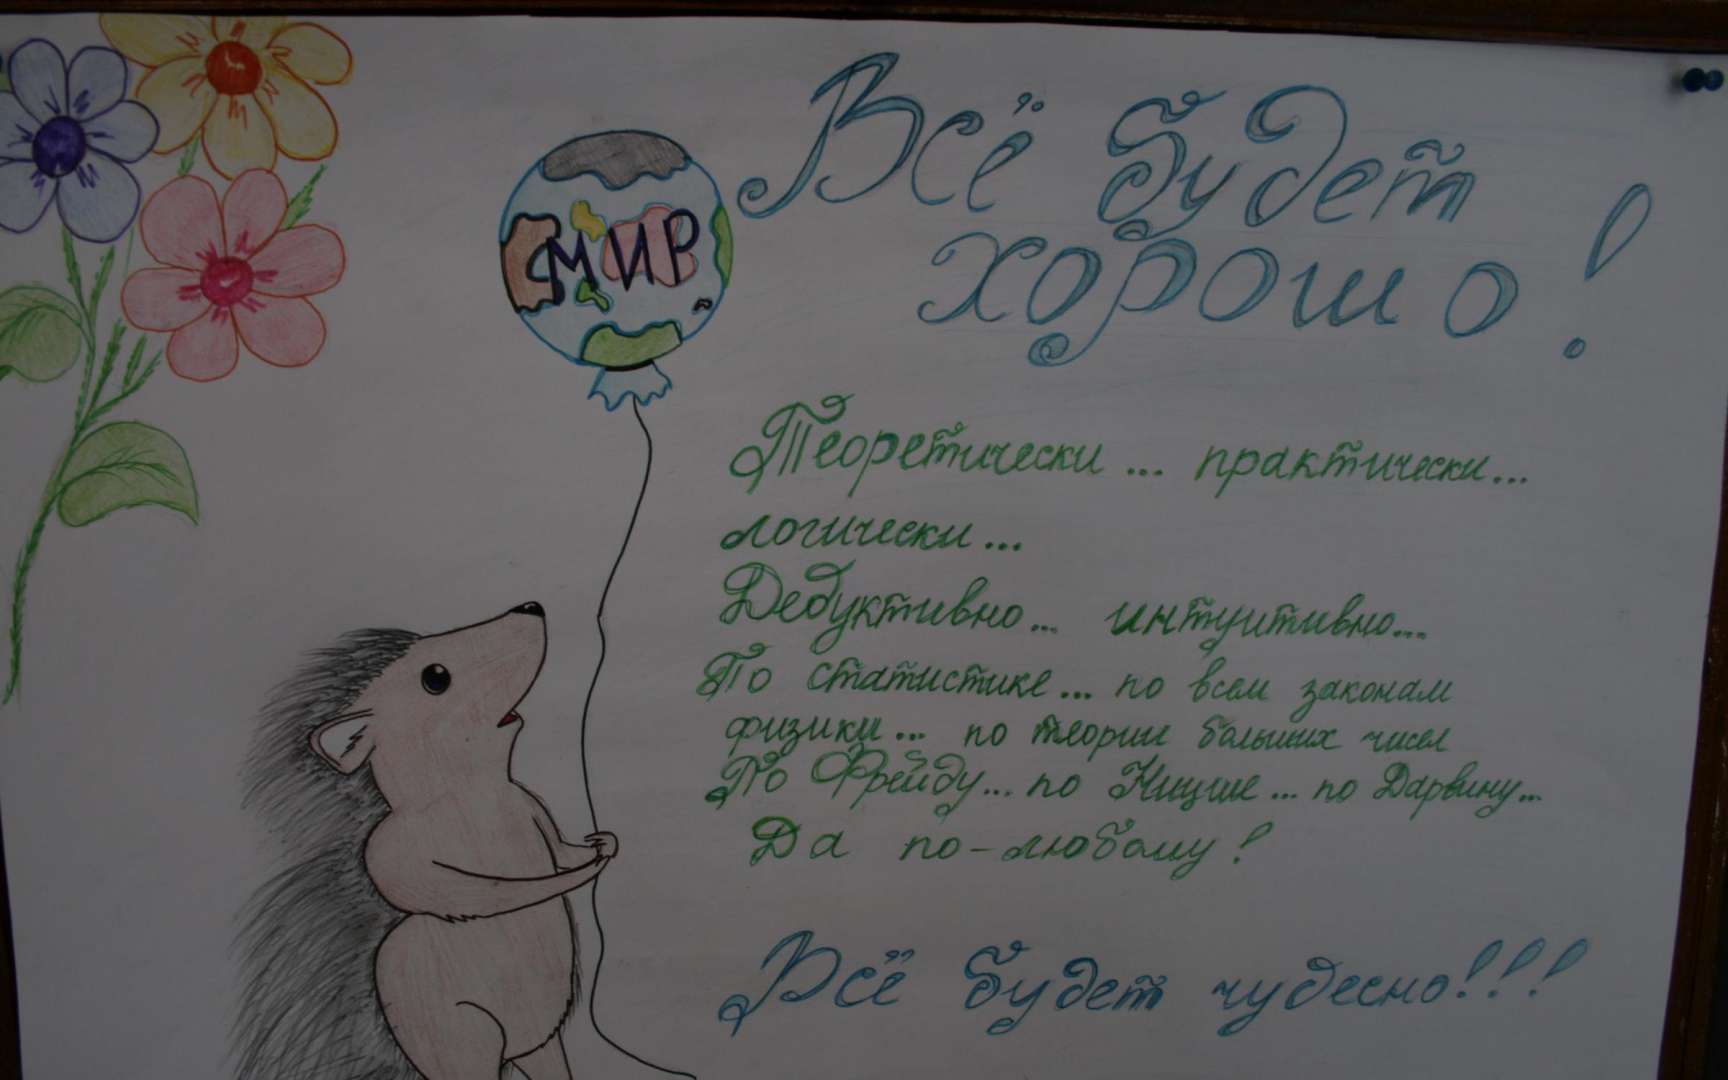 Всё будет
хорошо!
МИР
Теоретически... практически...
логически...
Дедуктивно... интуитивно...
По статистике... по всем законам
физики... по теории больших чисел
По Фрейду... по Ницше... по Дарвину...
Да по-любому!
Всё будет чудесно!!!